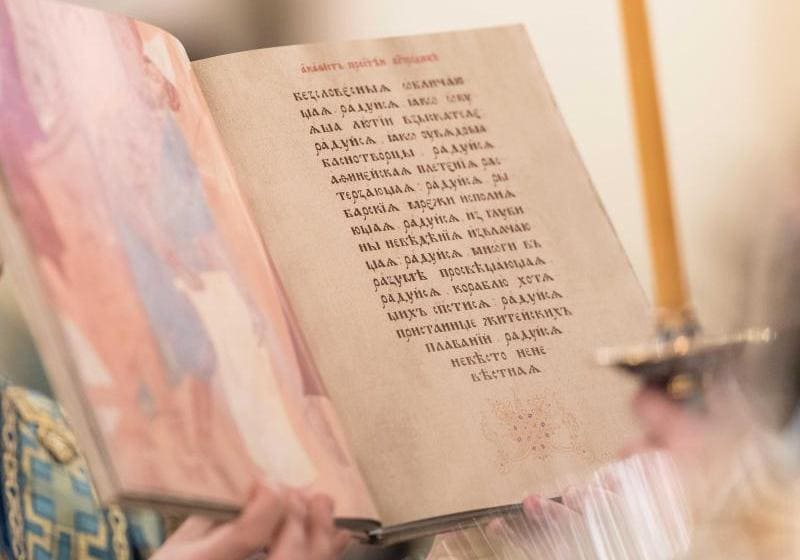 акафистъ прест҃ѣи бг҃ородицѣ
безсловесныѧ ѡбличаю
щаѧ. радуисѧ ꙗкѡ ѡбу
ѧша лютїи взыскателе.
радуйсѧ, ꙗкѡ оувѧдоша
баснотворцы. радуйсѧ
аѳинейскаѧ плетенїѧ рас
терзающаѧ: радуйсѧ, ры
барскїѧ мрежи исполнѧ
ющаѧ. радуйсѧ, из глуби
ны невѣдѣнїѧ извлачаю
щаѧ: радуйсѧ, многи въ
разумѣ просвѣщающаѧ.
радуйсѧ, кораблю хотѧ
щихъ спстисѧ: радуйсѧ
пристанище житейскихъ
плаванїй. радуйсѧ
невѣсто нене
вѣстнаѧ